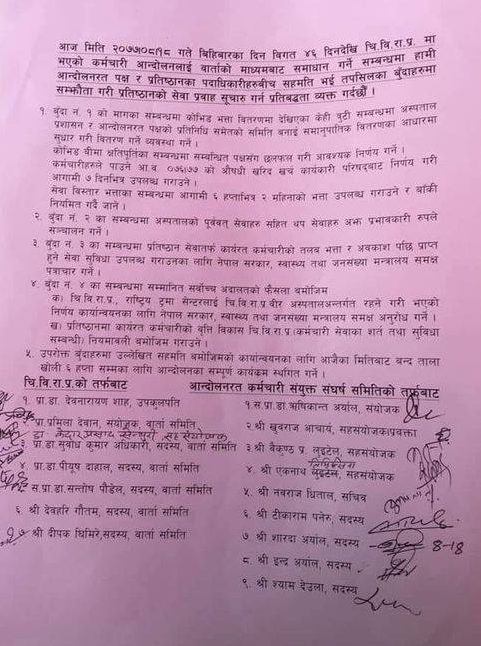 आज मिति २०७७/०८/१८ गते बिहिबारका दिन विगत ४६ दिनदेखि चि.वि.रा.प्र. मा
भएको कर्मचारी आन्दोलनलाई वार्ताको माध्यमबाट समाधान गर्ने सम्बन्धमा हामी
आन्दोलनरत पक्ष र प्रतिष्ठानका पदाधिकारीहरुबीच सहमति भई तपसिलका बुँदाहरुमा
सम्झौता गरी प्रतिष्ठानको सेवा प्रवाह सूचारु गर्न प्रतिबद्धता व्यक्त गर्दछौं ।
१. बुंदा नं. १ को मागका सम्बन्धमा कोभिड भत्ता वितरणमा देखिएका केही त्रुटी सम्बन्धमा अस्पताल
प्रशासन र आन्दोलनरत पक्षको प्रतिनिधि समेतको समिति बनाई समानुपातिक वितरणका आधारमा
सुधार गरी वितरण गर्ने व्यवस्था गर्ने ।
कोभिड बीमा क्षतिपूर्तिका सम्बन्धमा सम्बन्धित पक्षसंग छलफल गरी आवश्यक निर्णय गर्ने ।
कर्मचारीहरुले पाउने आ.व. ०७६/७७ को औषधी खरिद खर्च कार्यकारी परिषद्बाट निर्णय गरी
आगामी ७ दिनभित्र उपलब्ध गराउने ।
सेवा विस्तार भत्ताका सम्बन्धमा आगामी ६ हप्ताभित्र २ महिनाको भत्ता उपलब्ध गराउने र बाँकी
नियमित गर्दै जाने ।
२. बुंदा नं. २ का सम्बन्धमा अस्पतालको पूर्ववत् सेवाहरु सहित थप सेवाहरु अझ प्रभावकारी रुपले
सञ्चालन गर्ने ।
३. बुंदा नं. ३ का सम्बन्धमा प्रतिष्ठान सेवातर्फ कार्यरत कर्मचारीको तलब भत्ता र अवकाश पछि प्राप्त
हुने सेवा सुविधा उपलब्ध गराउनका लागि नेपाल सरकार, स्वास्थ्य तथा जनसंख्या मन्त्रालय समक्ष
पत्राचार गर्ने ।
४. बुंदा नं. ४ का सम्बन्धमा सम्मानित सर्वोच्च अदालतको फैसला बमोजिम
क) चि.वि.रा.प्र., राष्ट्रिय ट्रमा सेन्टरलाई चि.वि.रा.प्र.वीर अस्पतालअन्तर्गत रहने गरी भएको
निर्णय कार्यान्वयनका लागि नेपाल सरकार, स्वास्थ्य तथा जनसंख्या मन्त्रालय समक्ष अनुरोध गर्ने ।
ख) प्रतिष्ठानमा कार्यरत कर्मचारीको वृत्ति विकास चि.वि.रा.प्र.(कर्मचारी सेवाका शर्त तथा सुविधा
सम्बन्धी) नियमावली बमोजिम गराउने ।
५. उपरोक्त बुँदाहरुमा उल्लेखित सहमति बमोजिमको कार्यान्वयनका लागि आजैका मितिबाट बन्द ताला
खोली ६ हप्ता सम्मका लागि आन्दोलनका सम्पूर्ण कार्यक्रम स्थगित गर्ने ।
चि.वि.रा.प्र.को तर्फबाट
आन्दोलनरत कर्मचारी संयुक्त संघर्ष समितिको तर्फबाट
१. प्रा.डा. देवनारायण शाह, उपकुलपति
१.स.प्रा.डा.ऋषिकान्त अर्याल, संयोजक
प्रा.प्रमिला देवान, संयोजक, वार्ता समिति
२.श्री खुवराज आचार्य, सहसंयोजक/प्रवक्ता
डा केदार प्रसाद सेन्चुरी सह संयोजक
३. प्रा.डा.सुवोध कुमार अधिकारी, सदस्य, वार्ता समिति
३ श्री वैकुण्ठ प्र. लुइटेल, सहसंयोजक
४. प्रा.डा.पीयूष दाहाल, सदस्य, वार्ता समिति
४. श्री एकनाथ लुइटेल, सहसंयोजक
५. स.प्रा.डा.सन्तोष पौडेल, सदस्य, वार्ता समिति
५. श्री नवराज धिताल, सचिव
६. श्री देवहरि गौतम, सदस्य, वार्ता समिति
६. श्री टीकाराम पनेरु, सदस्य
७ श्री दीपक घिमिरे,सदस्य, वार्ता समिति
७. श्री शारदा अर्याल, सदस्य 8-18
८. श्री इन्द्र अर्याल, सदस्य
९. श्री श्याम देउला, सदस्य